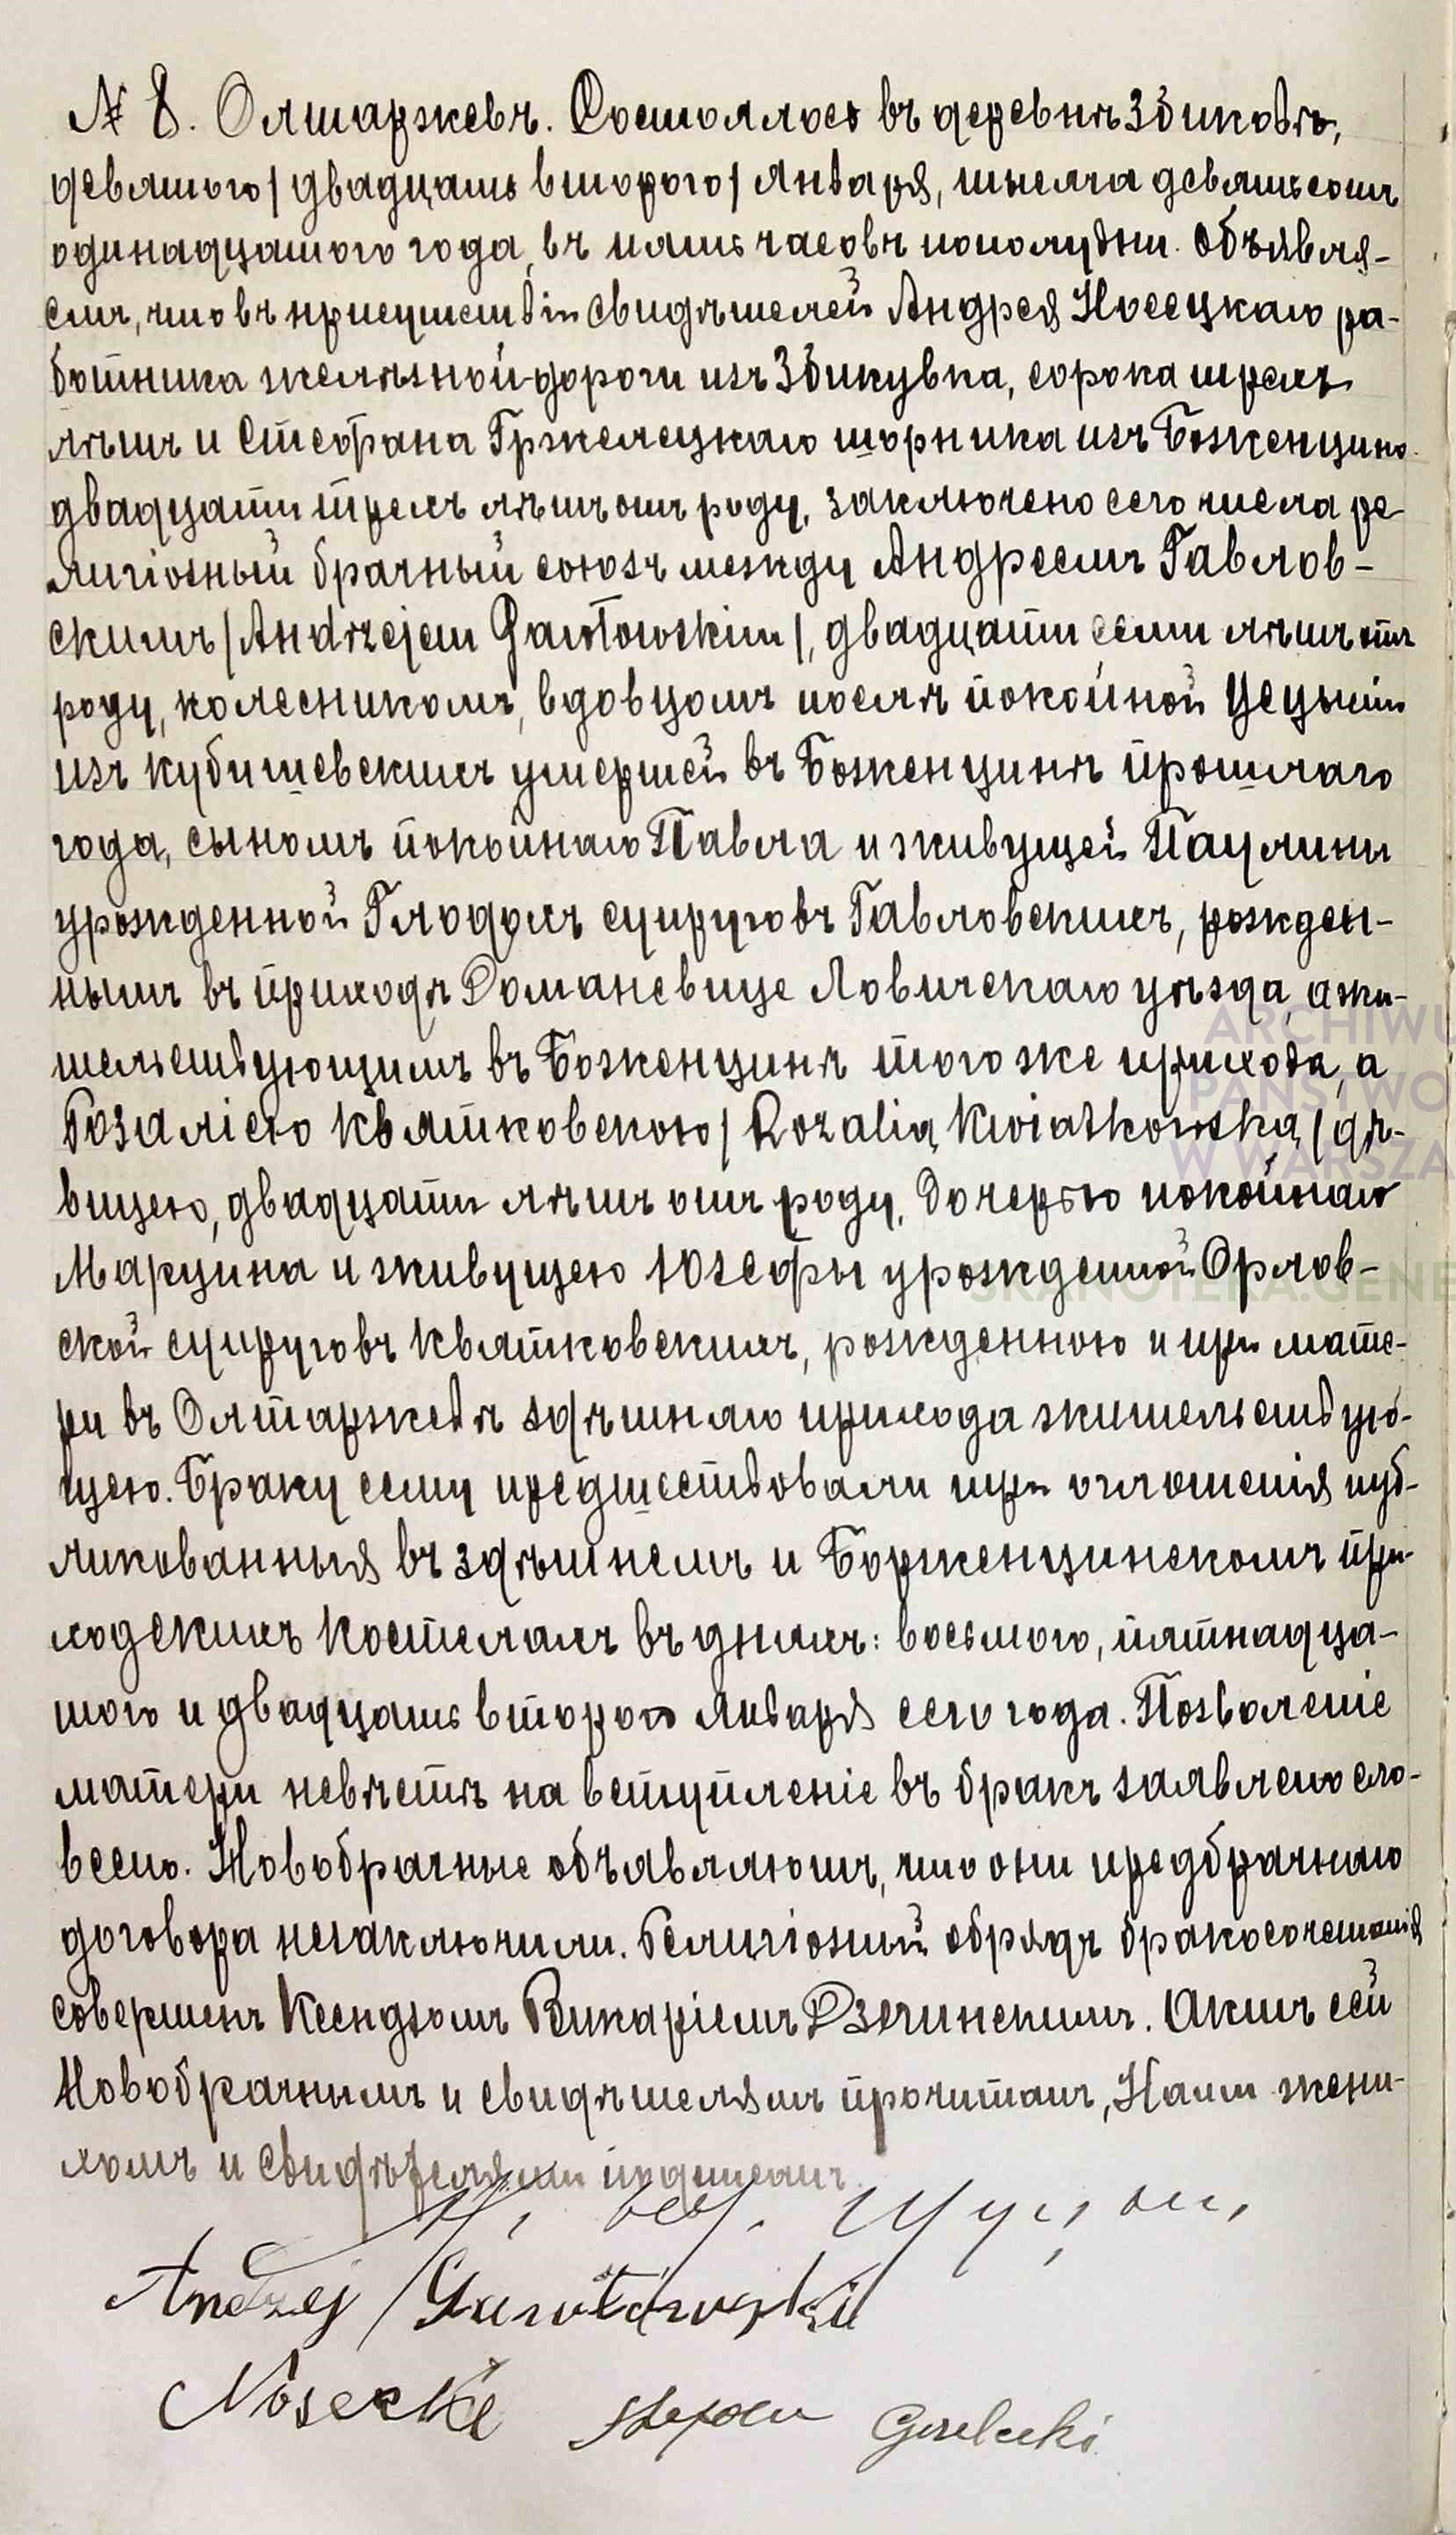 № 8. Олтаржевъ. Состоялось въ деревнѣ Збиковѣ,
девятого / двадцать второго / Января, тысяча девятьсотъ
одинадцатого года, въ пять часовъ пополудни. Объявля-
емъ, что въ присутствіи свидѣтелей Андрея Носецкаго ра-
ботника желѣзной дороги изъ Збикувка, сорока трехъ
лѣтъ и Стефана Гржелецкаго шорника изъ Боженцина
двадцати трехъ лѣтъ отъ роду, заключено сего числа ре-
лигіозный брачный союзъ между Андреемъ Гавлов-
скимъ / Andrzejem Gawłowskim /, двадцати семи лѣтъ отъ
роду, колесникомъ, вдовцомъ послѣ покойной Цецыліи
изъ Кубишевскихъ умершей въ Боженцинѣ прошлаго
года, сыномъ покойнаго Павла и живущей Паулины
урожденной Глодохъ супруговъ Гавловскихъ, рожден-
нымъ въ приходѣ Доманевице Ловичскаго уѣзда, а жи-
тельствующимъ въ Боженцинѣ того же прихода, а
Розаліею Квятковскою / Rozalią Kwiatkowską / дѣ-
вицею, двадцати лѣтъ отъ роду, дочерью покойнаго
Марцина и живущею Юзефы урожденной Орлов-
ской супруговъ Квятковскихъ, рожденною и при мате-
ри въ Олтаржевѣ здѣшняго прихода жительствую-
щею. Браку сему предшествовали три оглошенія пуб-
ликованныя въ здѣшнемъ и Борженцинскомъ при-
ходскихъ костелахъ въ дняхъ: восьмого, пятнадца-
того и двадцать второго Января сего года. Позволеніе
матери невѣстѣ на вступленіе въ бракъ заявлено сло-
весно. Новобрачные объявляютъ, что они предбрачнаго
договора незаключили. Религіозный обрядъ бракосочетанія
совершенъ Ксендзомъ Викаріемъ Дзегинскимъ. Актъ сей
Новобрачнымъ и свидѣтелямъ прочитанъ, Нами жени-
хомъ и свидѣтелями подписанъ.
Andrzej Gawłowski
Nosecki Stefan Grzelecki
ARCHIWU
PAŃSTWO
W WARSZA
SKANOTEKA.GENE